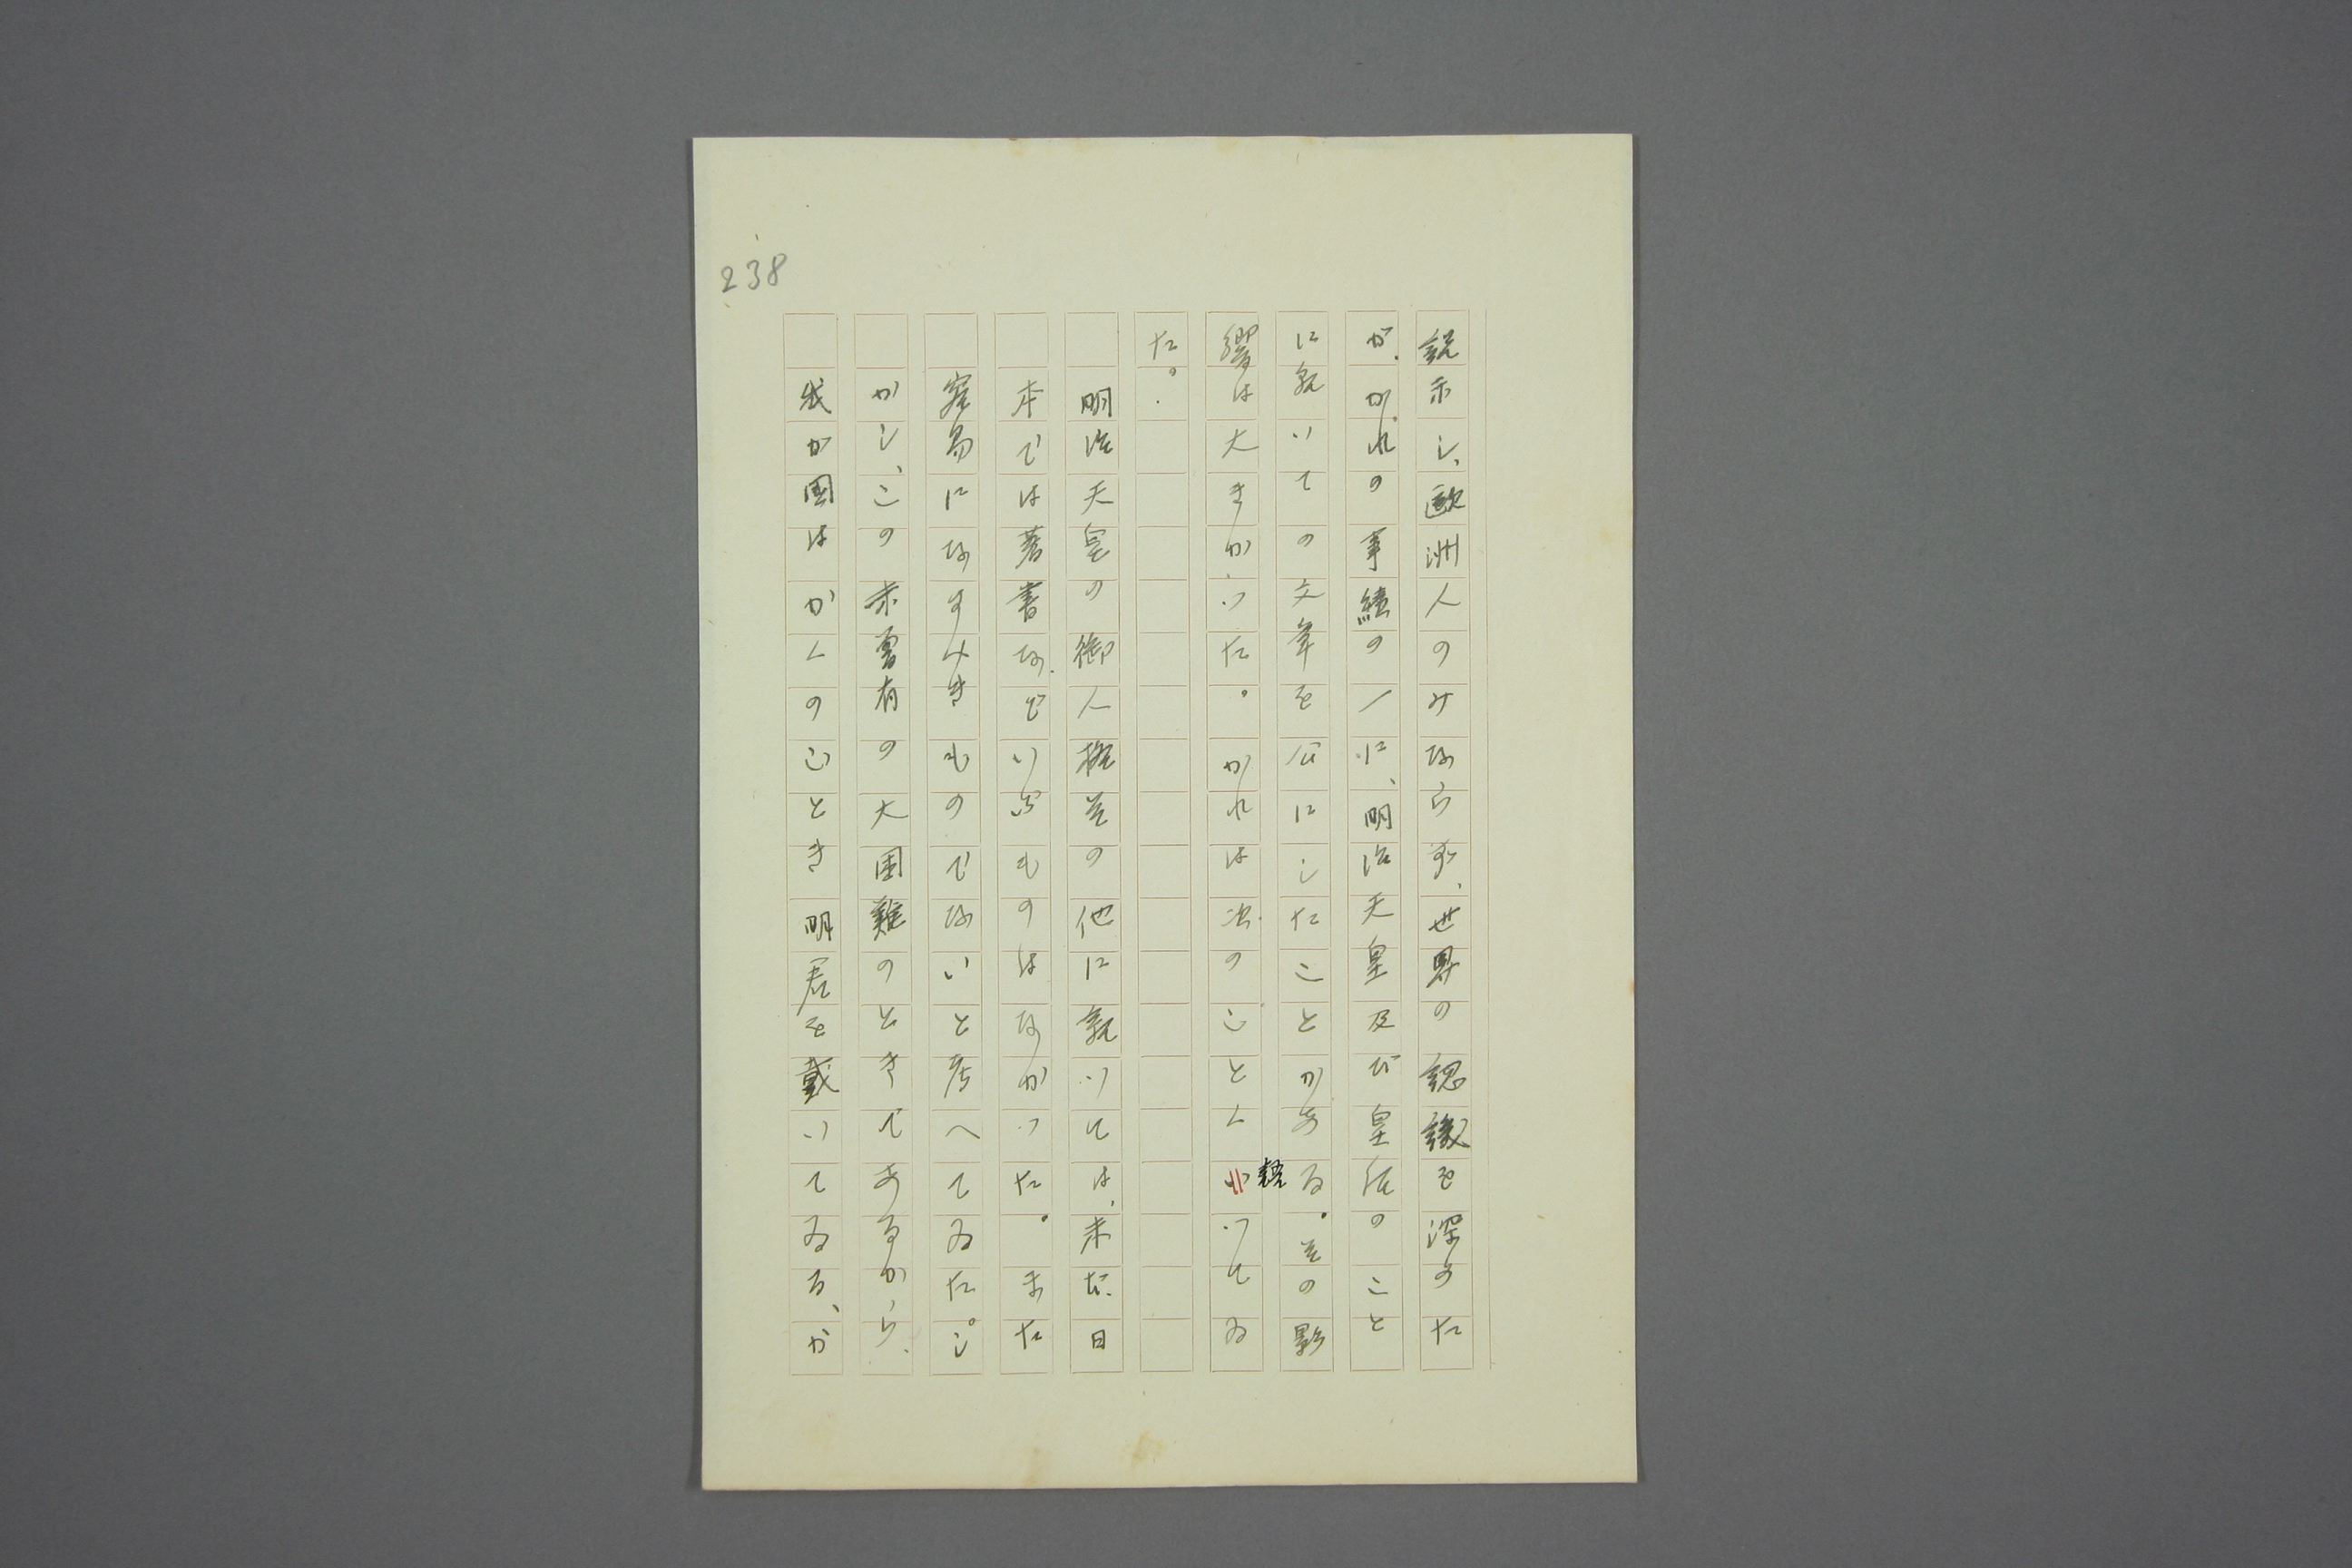 238
説示し、歐洲人のみならず、世界の認識を深めた
が、かれの事績の一に、明治天皇及び皇后のこと
に就いての文章を公にしたことがある。其の影
響は大きかつた。かれは次のごとく語つてゐ
た。
明治天皇の御人格其の他に就いては、未だ日
本では著書などいふものはなかつた。また
容易になすべきものでないと考へてゐた。し
かし、この未曽有の大困難のときであるから、
我が國はかくのごとき明君を戴いてゐる、か